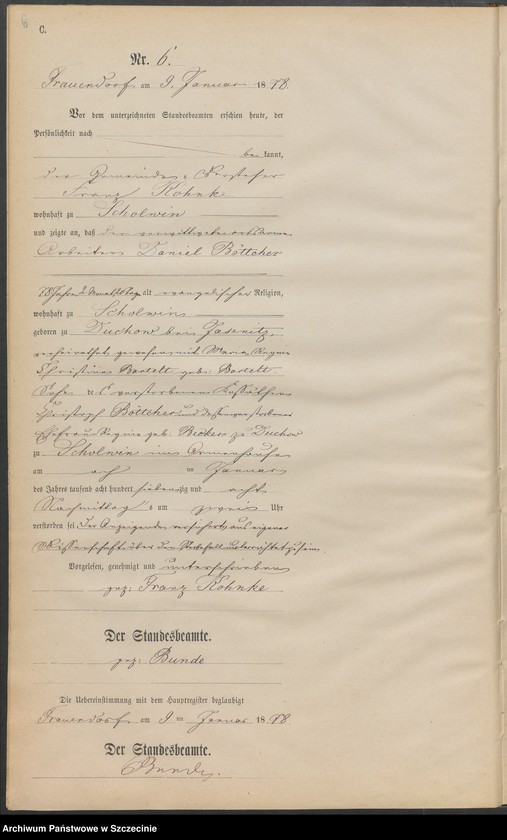 6
C.
Nr. 6.
Frauendorf am 9. Januar 1878.
Vor dem unterzeichneten Standesbeamten erschien heute, der
Persönlichkeit nach
bekannt,
der Gemeinde-Vorsteher
Franz Kohnke
wohnhaft zu Scholwin
und zeigte an, daß der verwittwete Ortsarme
Arbeiter Daniel Böttcher
78 Jahre alt, evangelischer Religion,
wohnhaft zu Scholwin
geboren zu Duchow bei Jasenitz,
verheirathet gewesen mit Maria Regine
Christine Bartelt geb: Bartelt
Sohn des verstorbenen Kossäthen
Christoph Böttcher und dessen verstorbener
Ehefrau Regine geb: Becker zu Duchow
zu Scholwin im Armenhause
am acht ten Januar
des Jahres tausend acht hundert siebenzig und acht
Nachmittags um zwei Uhr
verstorben sei. Der Anzeigende versichert, aus eigener
Wissenschaft über den Sterbefall unterrichtet zu sein.
Vorgelesen, genehmigt und unterschrieben
gez: Franz Kohnke
Der Standesbeamte.
gez: Bunde
Die Uebereinstimmung mit dem Hauptregister beglaubigt
Frauendorf am 9ten Januar 1878
Der Standesbeamte.
Bunde.
Archiwum Państwowe w Szczecinie